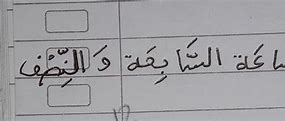 اعَة السَّابِعَة وَ النِّصْف